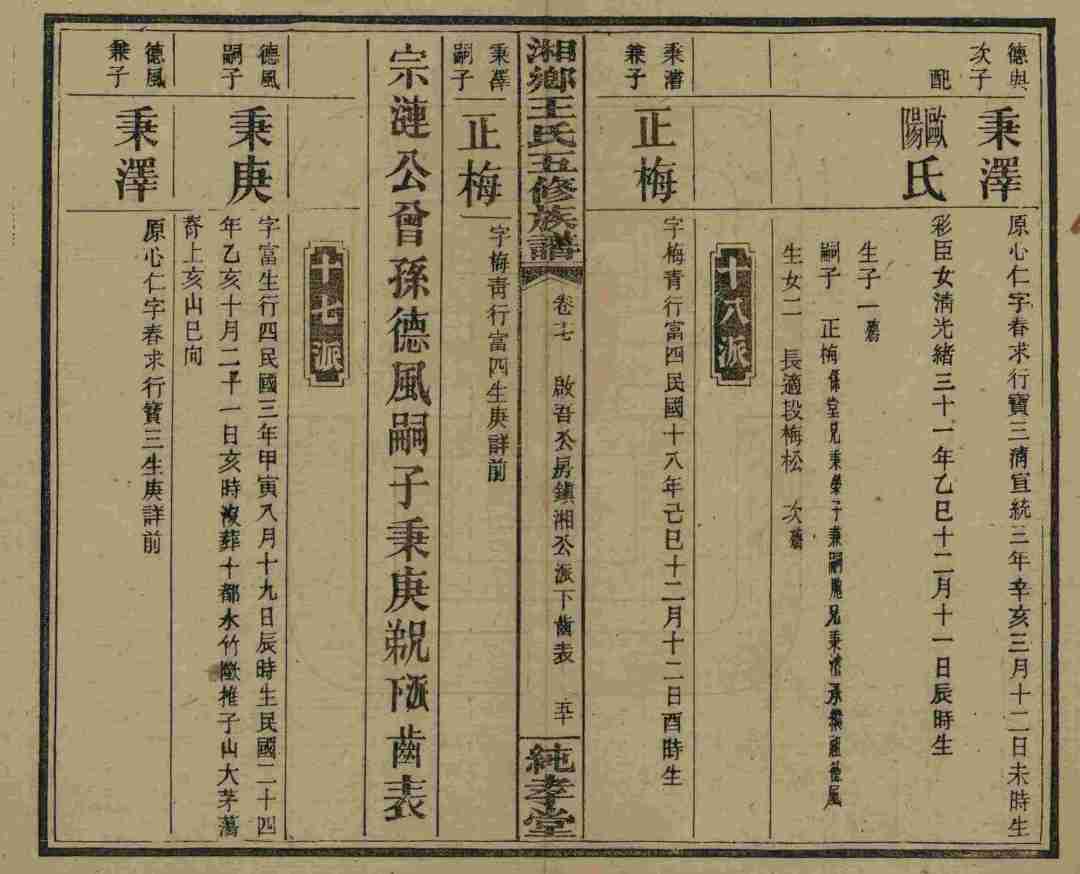 德與
次子
秉澤
原心仁字春求行寶三清宣統三年辛亥三月十二日未時生
配
歐陽氏
彩臣女清光緒三十一年乙巳十二月十一日辰時生
生子一殤
嗣子 正梅係堂兄秉榮子兼嗣胞兄秉漕承繼祖德風
生女二 長適段梅松 次殤
十八派
秉漕
兼子
正梅
字梅青行富四民國十八年己巳十二月十二日酉時生
湘鄉王氏五修族譜
卷十七 啟吾公房鎮湘公派下齒表 五十
純孝堂
秉澤
嗣子
正梅
字梅靑行富四生庚詳前
宗漣公曾孫德風嗣子秉庚派下齒表
十七派
德風
嗣子
秉庚
字富生行四民國三年甲寅八月十九日辰時生民國二十四
年乙亥十月二十一日亥時歿葬十都水竹推子山大茅
上亥山巳向
德風
兼子
秉澤
原心仁字春求行寶三生庚詳前